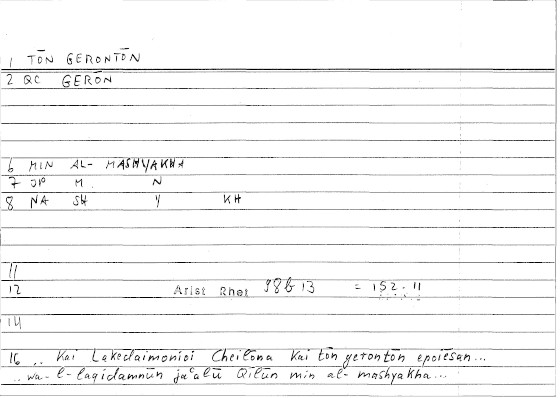 1 TŌN GERONTŌN
2 QC GERŌN
6 MIN AL- MASHYAKHA
7 JP M N
8 NA SH Y KH
11
12 Arist Rhet 98b 13 = 152.11
14
16 .. Kai Lakedaimonioi Cheilōna Kai tōn gerontōn epoiēsan...
.. wa-l-laqidamnūn jaʿalū Qilūn min al-mashyakha...